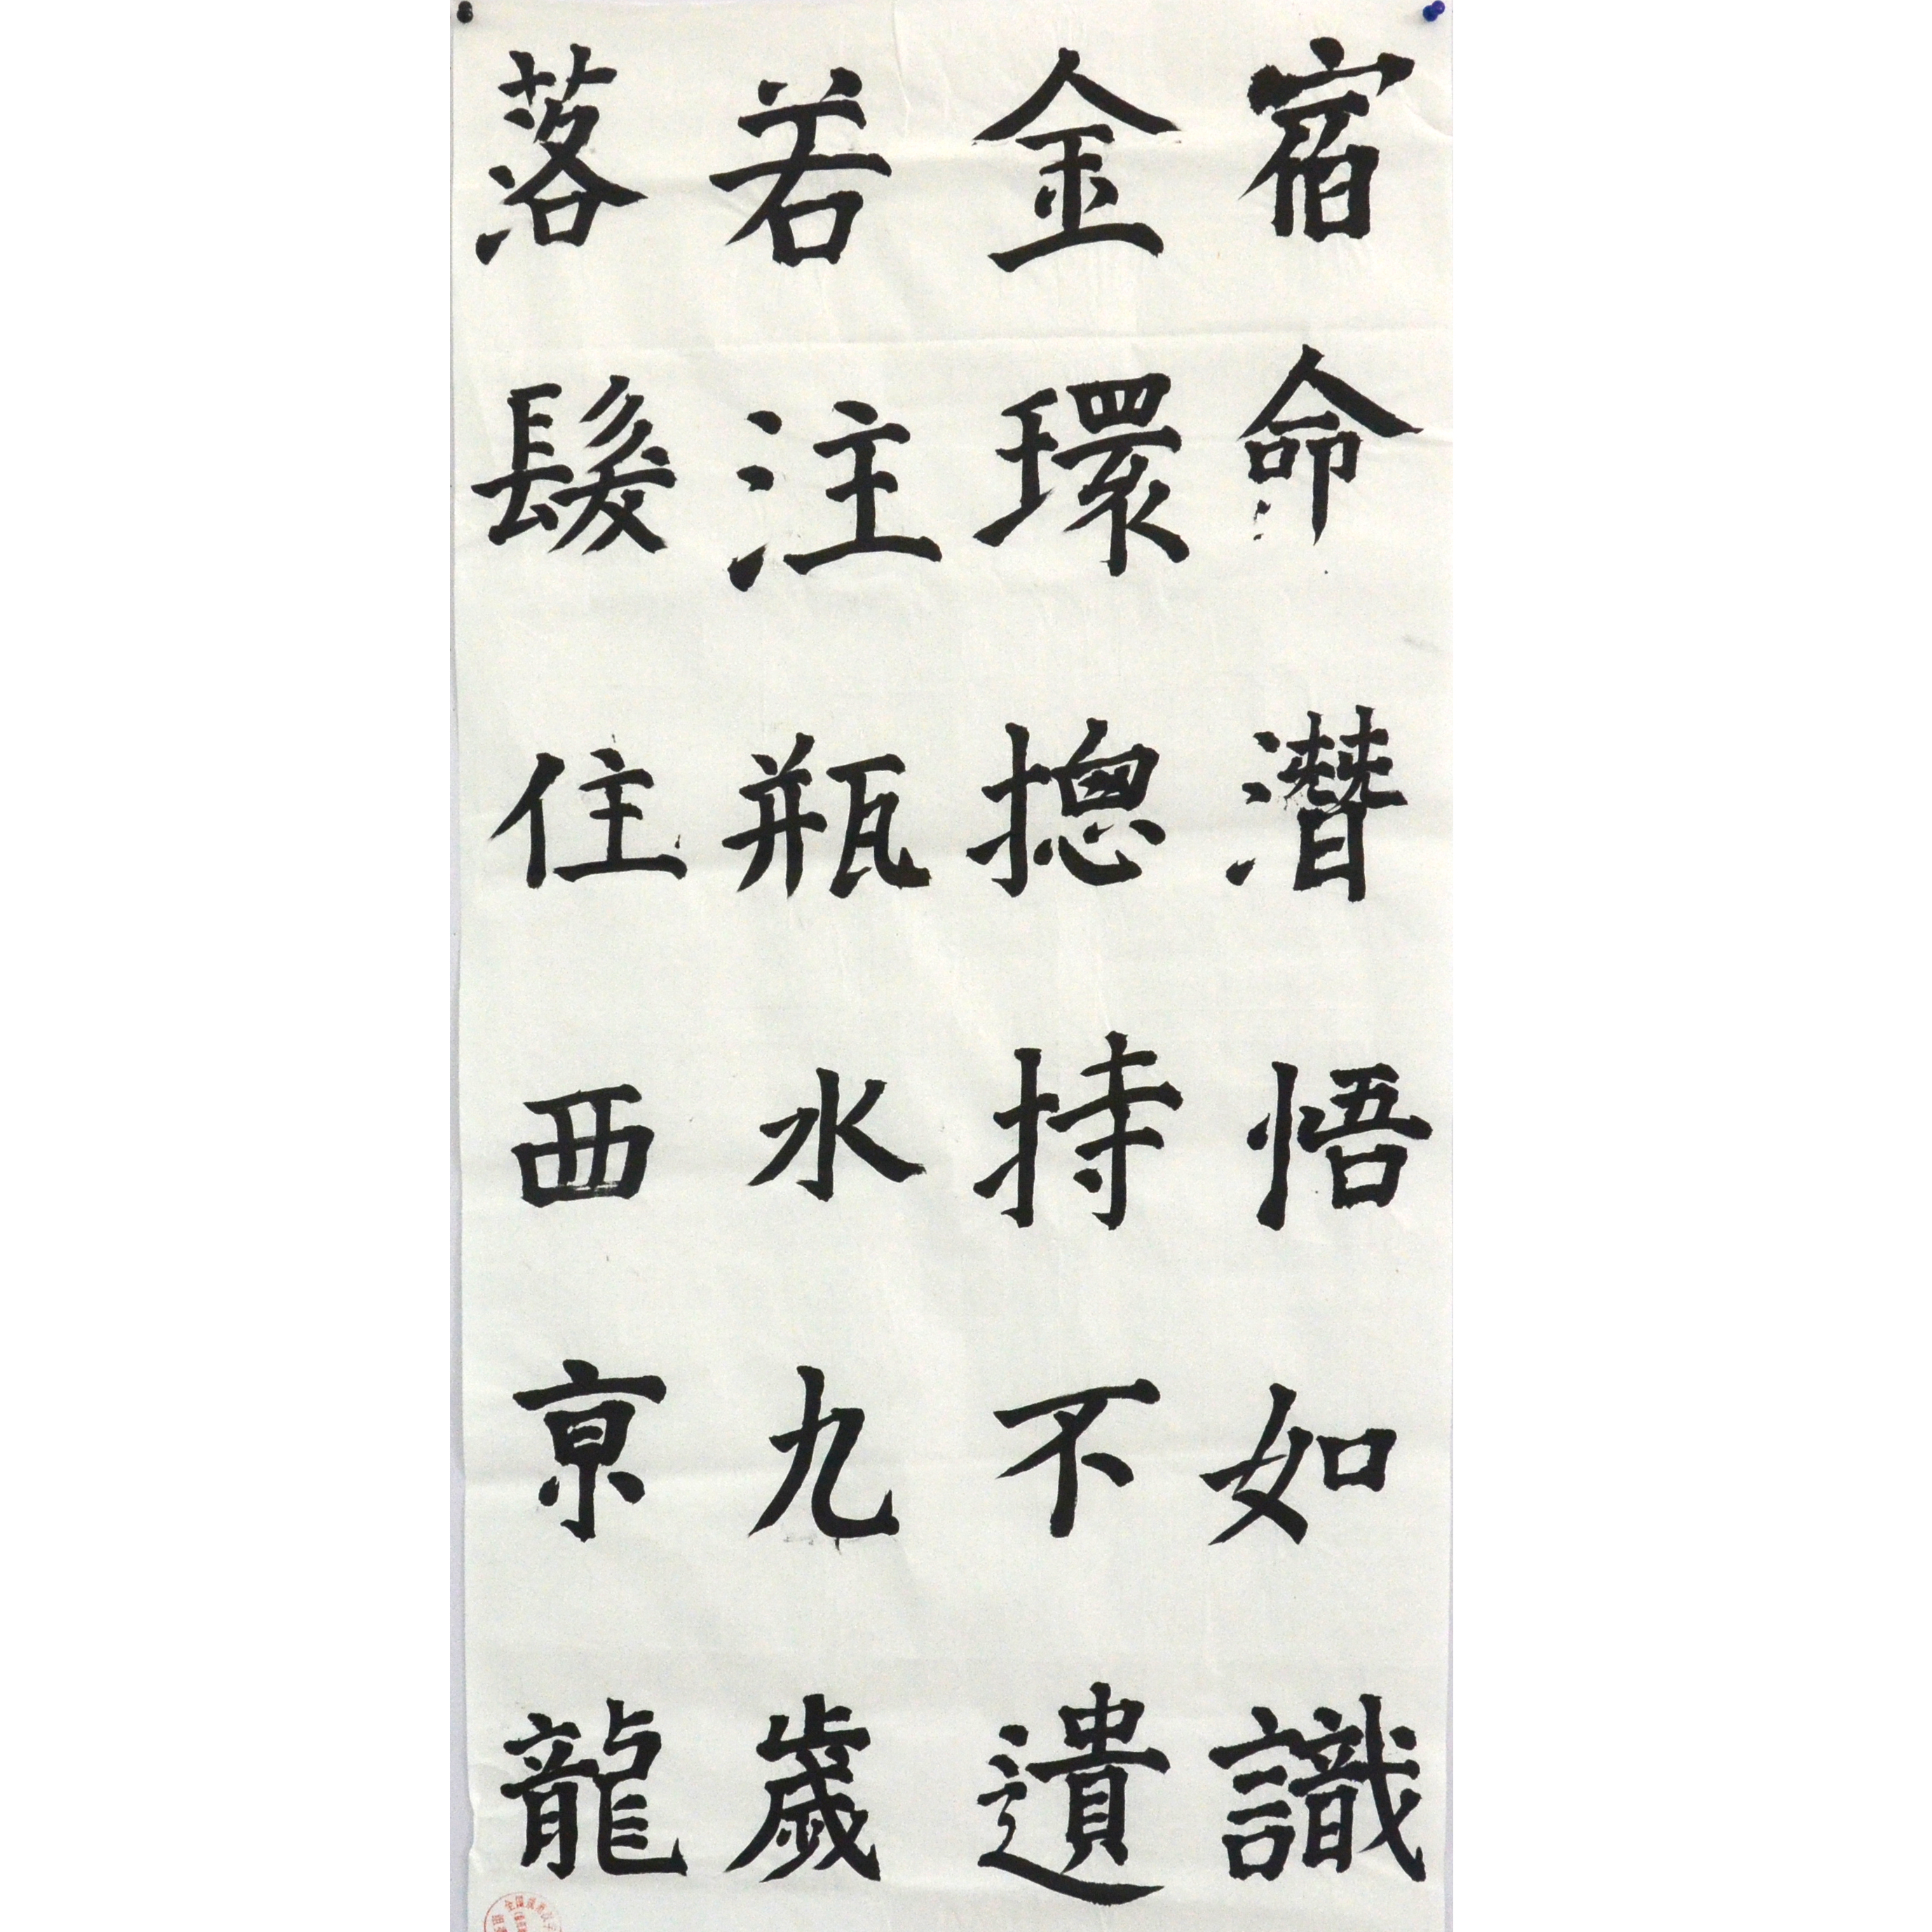 宿命潛悟如識
金環揔持不遺
若注瓶水九歲
落髮住西京龍